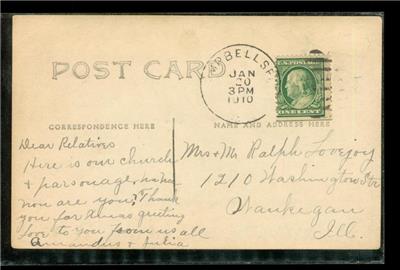 POST CARD
MPBELLSP
JAN
20
3PM
1910
U.S. POSTAGE
ONE CENT
CORRESPONDENCE HERE
NAME AND ADDRESS HERE
Dear Relatives
Here is our church
& parsonage.
how are you? Thank
you for Xmas greeting
love to you from us all
Amandus & Julia
Mrs & Mr Ralph Lovejoy
1210 Washington Str
Waukegan
Ill.